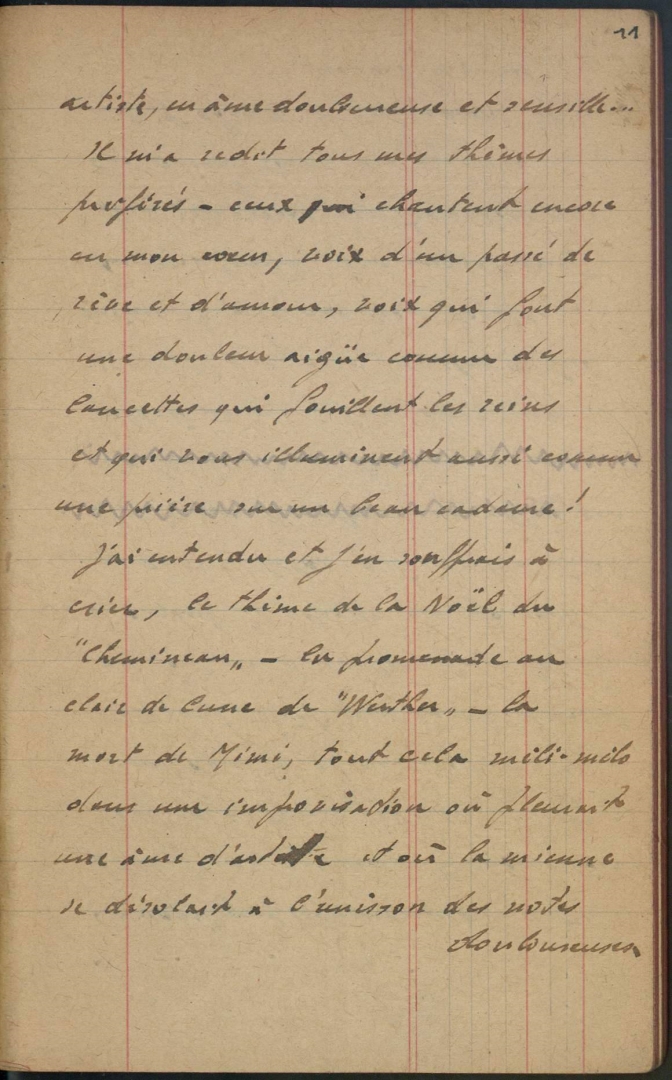 11
artiste, un âme douloureuse et sensible...
Il m'a redit tous mes thèmes
préférés - ceux qui chantent encore
en mon cœur, voix d'un passé de
rêve et d'amour, voix qui font
une douleur aigüe comme des
lancettes qui fouillent les reins
et qui vous illuminent aussi comme
une prière sur un beau cadavre !
J'ai entendu et j'en souffrais à
crier, le thème de la Noël du
"Chemineau„ - la promenade au
clair de lune de "Werther„ - la
mort de Mimi, tout cela mêli-mélo
dans une improvisation où pleurait
une âme d'artiste et où la mienne
se désolait à l'unisson des notes
douloureuses